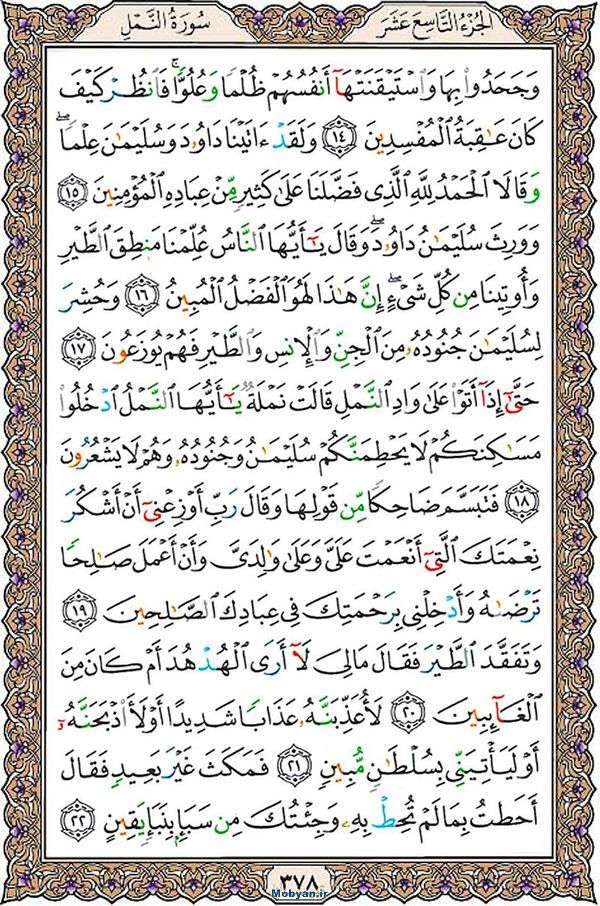 الجزء التاسع عشر
سورة النمل
وَجَحَدُوا۟ بِهَا وَٱسۡتَيۡقَنَتۡهَآ أَنفُسُهُمۡ ظُلۡمٗا وَعُلُوّٗاۚ فَٱنظُرۡ كَيۡفَ
كَانَ عَٰقِبَةُ ٱلۡمُفۡسِدِينَ ١٤ وَلَقَدۡ ءَاتَيۡنَا دَاوُۥدَ وَسُلَيۡمَٰنَ عِلۡمٗاۖ
وَقَالَا ٱلۡحَمۡدُ لِلَّهِ ٱلَّذِي فَضَّلَنَا عَلَىٰ كَثِيرٖ مِّنۡ عِبَادِهِ ٱلۡمُؤۡمِنِينَ ١٥
وَوَرِثَ سُلَيۡمَٰنُ دَاوُۥدَۖ وَقَالَ يَٰٓأَيُّهَا ٱلنَّاسُ عُلِّمۡنَا مَنطِقَ ٱلطَّيۡرِ
وَأُوتِينَا مِن كُلِّ شَيۡءٍۖ إِنَّ هَٰذَا لَهُوَ ٱلۡفَضۡلُ ٱلۡمُبِينُ ١٦ وَحُشِرَ
لِسُلَيۡمَٰنَ جُنُودُهُۥ مِنَ ٱلۡجِنِّ وَٱلۡإِنسِ وَٱلطَّيۡرِ فَهُمۡ يُوزَعُونَ ١٧
حَتَّىٰٓ إِذَآ أَتَوۡا۟ عَلَىٰ وَادِ ٱلنَّمۡلِ قَالَتۡ نَمۡلَةٞ يَٰٓأَيُّهَا ٱلنَّمۡلُ ٱدۡخُلُوا۟
مَسَٰكِنَكُمۡ لَا يَحۡطِمَنَّكُمۡ سُلَيۡمَٰنُ وَجُنُودُهُۥ وَهُمۡ لَا يَشۡعُرُونَ
١٨ فَتَبَسَّمَ ضَاحِكٗا مِّن قَوۡلِهَا وَقَالَ رَبِّ أَوۡزِعۡنِيٓ أَنۡ أَشۡكُرَ
نِعۡمَتَكَ ٱلَّتِيٓ أَنۡعَمۡتَ عَلَيَّ وَعَلَىٰ وَٰلِدَيَّ وَأَنۡ أَعۡمَلَ صَٰلِحٗا
تَرۡضَىٰهُ وَأَدۡخِلۡنِي بِرَحۡمَتِكَ فِي عِبَادِكَ ٱلصَّٰلِحِينَ ١٩
وَتَفَقَّدَ ٱلطَّيۡرَ فَقَالَ مَالِيَ لَآ أَرَى ٱلۡهُدۡهُدَ أَمۡ كَانَ مِنَ
ٱلۡغَآئِبِينَ ٢٠ لَأُعَذِّبَنَّهُۥ عَذَابٗا شَدِيدًا أَوۡ لَأَا۟ذۡبَحَنَّهُۥٓ
أَوۡ لَيَأۡتِيَنِّي بِسُلۡطَٰنٖ مُّبِينٖ ٢١ فَمَكَثَ غَيۡرَ بَعِيدٖ فَقَالَ
أَحَطتُ بِمَا لَمۡ تُحِطۡ بِهِۦ وَجِئۡتُكَ مِن سَبَإِۭ بِنَبَإٖ يَقِينٍ ٢٢
٣٧٨
Mobyan.ir